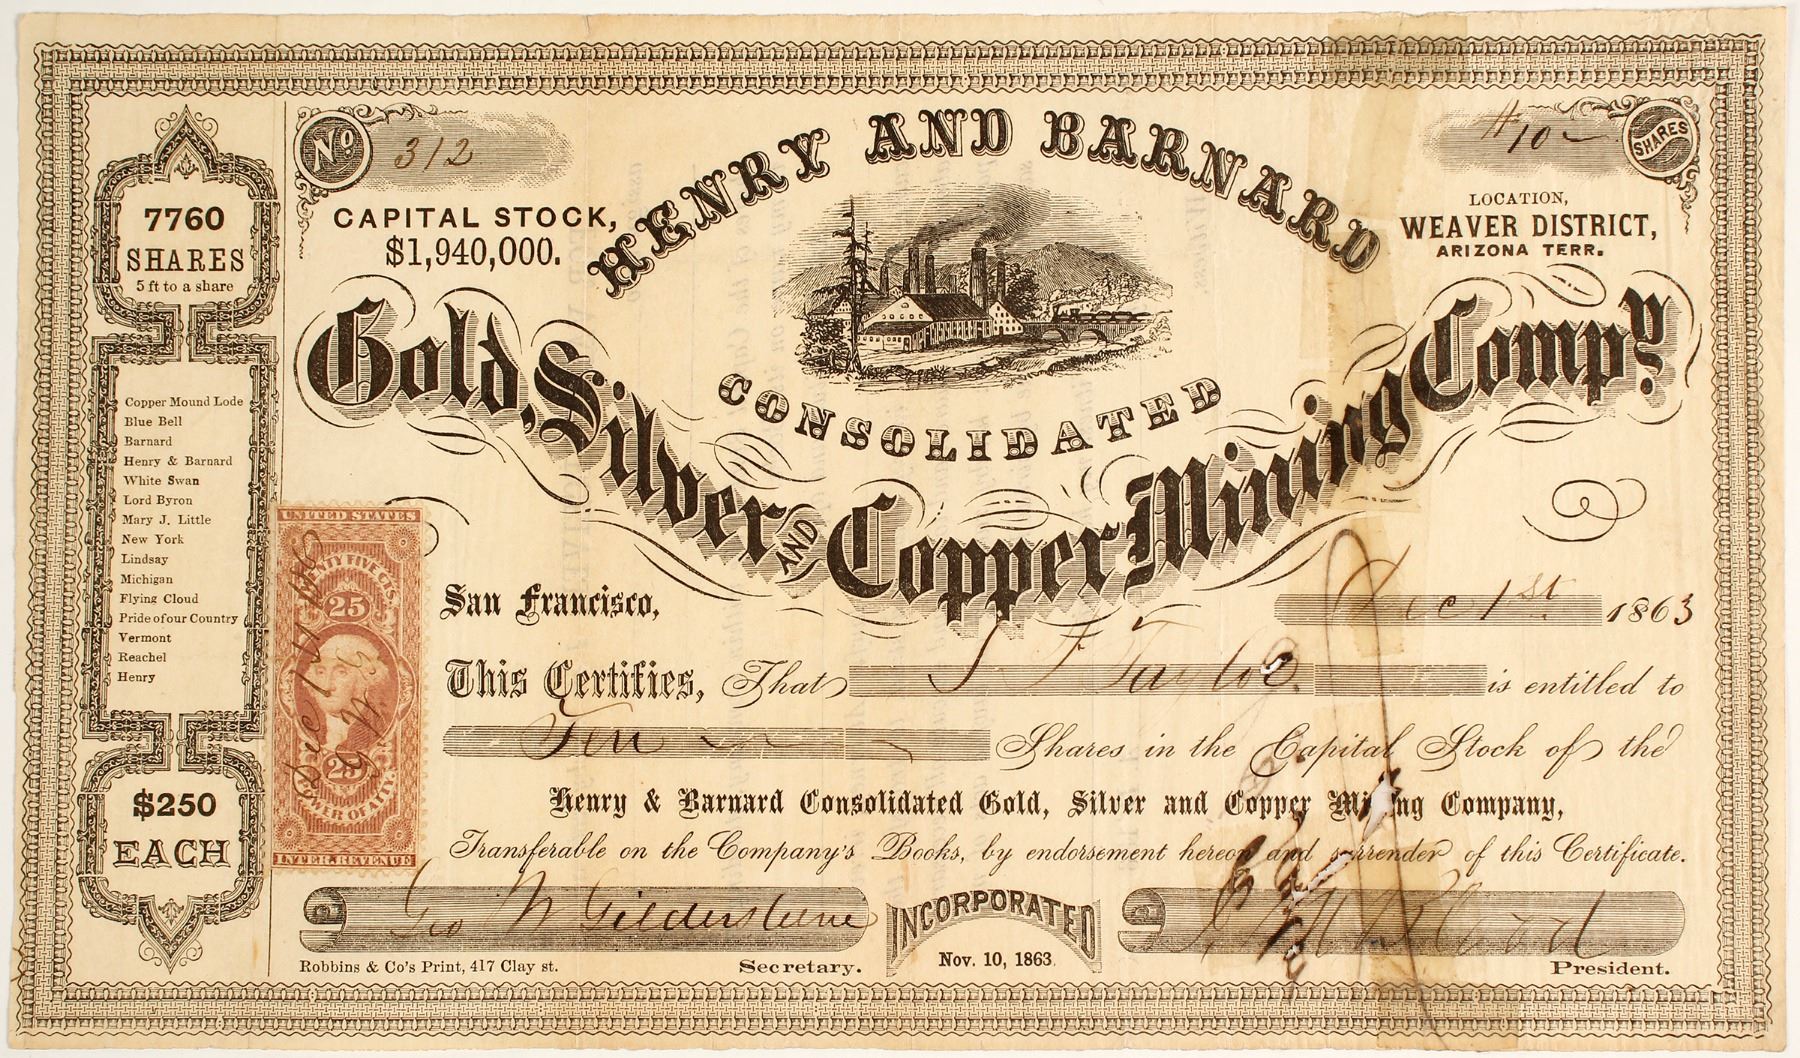 No 312
# 10 -
SHARES
HENRY AND BARNARD
CAPITAL STOCK,
$1,940,000.
LOCATION,
WEAVER DISTRICT,
ARIZONA TERR.
CONSOLIDATED
Gold, Silver AND Copper Mining Compy.
7760
SHARES
5 ft to a share
Copper Mound Lode
Blue Bell
Barnard
Henry & Barnard
White Swan
Lord Byron
Mary J. Little
New York
Lindsay
Michigan
Flying Cloud
Pride of our Country
Vermont
Reachel
Henry
$250
EACH
UNITED STATES
TWENTY FIVE CTS.
25
25
POWER OF ATT'Y.
INTER. REVENUE
Dec 1st 1863
G W G
San Francisco, Dec 1st 1863
This Certifies, That Taylor is entitled to
Ten Shares in the Capital Stock of the
Henry & Barnard Consolidated Gold, Silver and Copper Mining Company,
Transferable on the Company's Books, by endorsement hereon and surrender of this Certificate.
Geo W Gildersleeve
Secretary.
INCORPORATED
Nov. 10, 1863.
President.
Robbins & Co's Print, 417 Clay st.